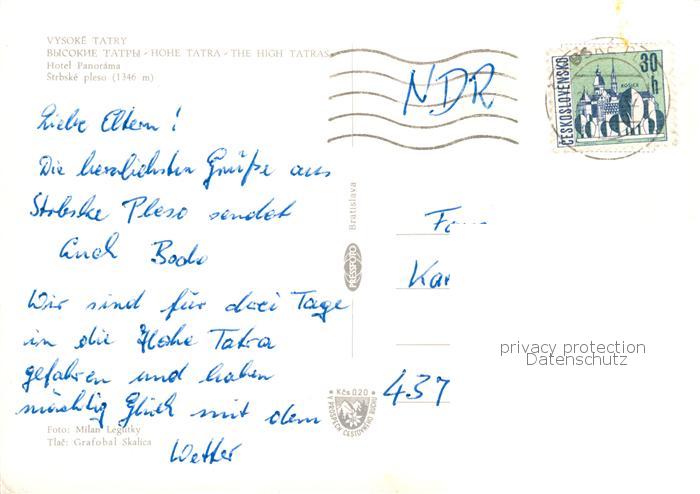 VYSOKÉ TATRY
ВЫСОКИЕ ТАТРЫ - HOHE TATRA - THE HIGH TATRAS
Hotel Panoráma
Štrbské pleso (1346 m)
NDR
ČESKOSLOVENSKO
30 h
KOŠICE
Liebe Eltern!
Die herzlichsten Grüße aus
Strbske Pleso sendet
Euch Bodo
Wir sind für drei Tage
in die Hohe Tatra
gefahren und haben
mächtig Glück mit dem
Wetter
Bratislava
PRESSFOTO
Kar
437
privacy protection
Datenschutz
Kčs 0,20
V PROSPECH CESTOVNÉHO RUCHU
Foto: Milan Legutky
Tlač: Grafobal Skalica